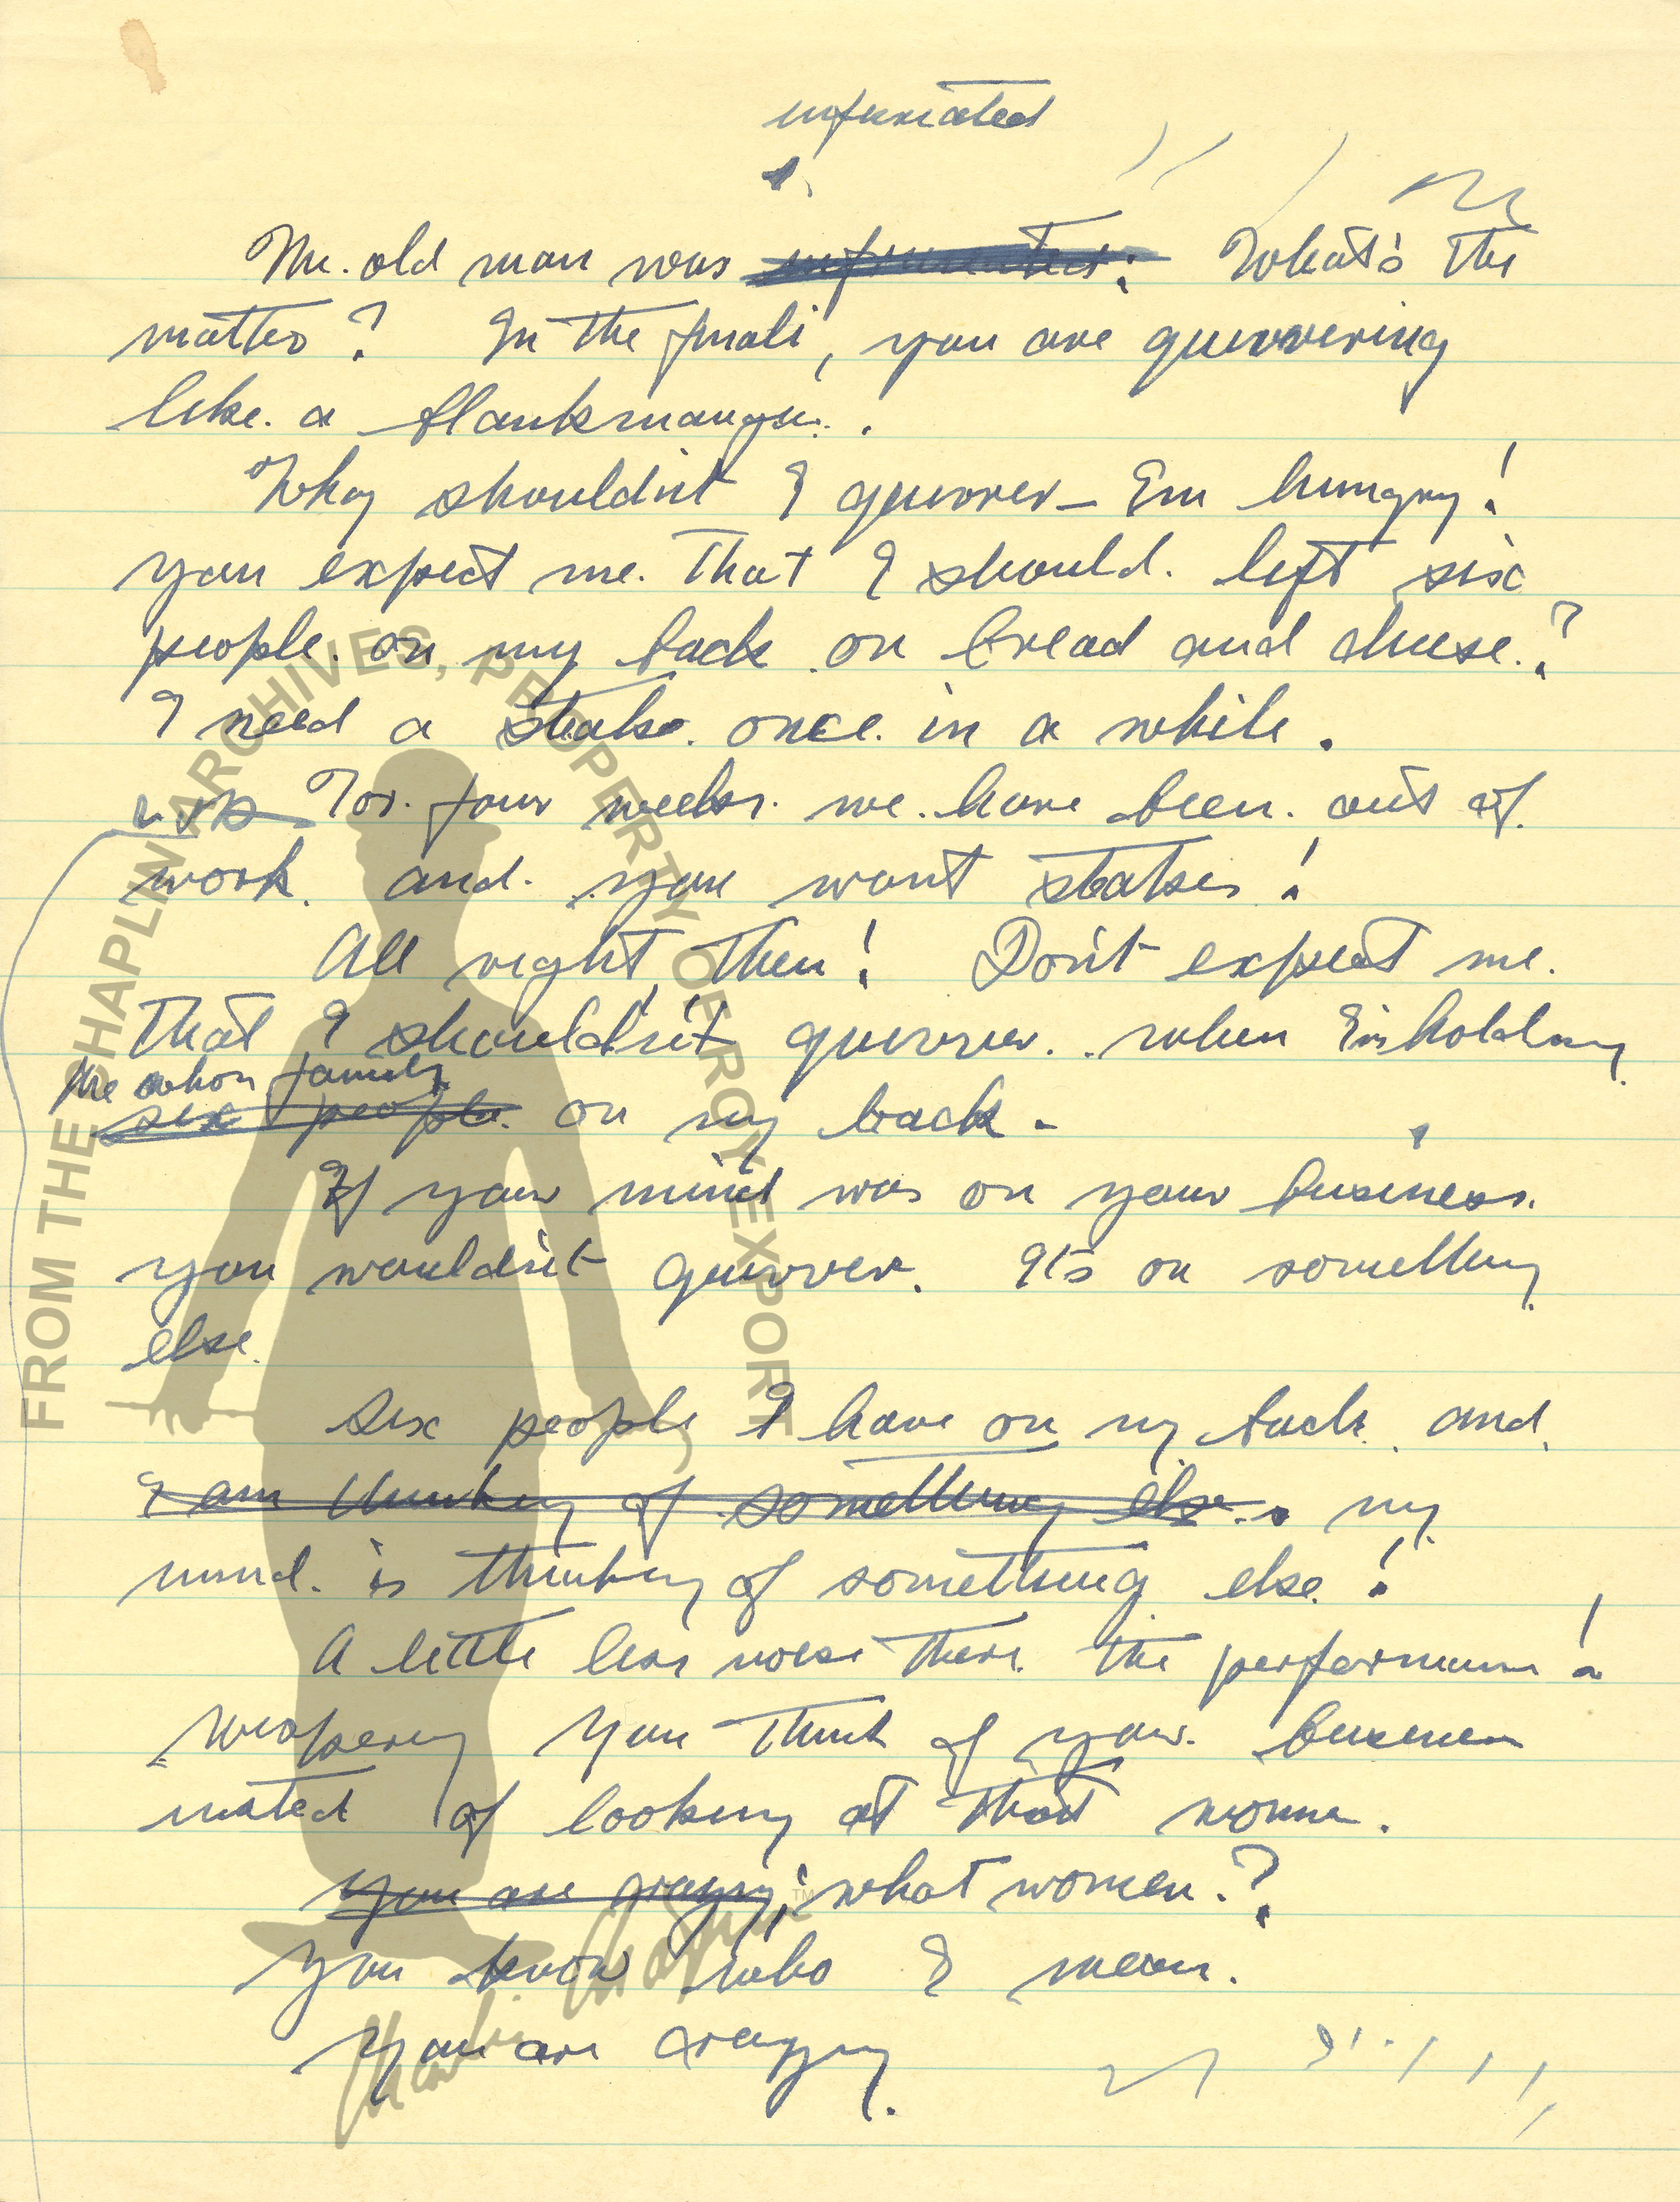 infuriated
The old man was infuriated: What's the
matter? In the finali, you are quivvering
like a blankmange.
Why shouldn't I quivver – I'm hungry!
you expect me that I should left six
people on my back on bread and cheese?
I need a stake once in a while.
For four weeks we have been out of
work and you want stakes!
All right, then! Don't expect me
that I shouldn't quivver when I'm holding
the whol family
six people on my back –
If your mind was on your business
you wouldn't quivver. It's on something
else.
Six people I have on my back and
I am thinking of something else. my
mind is thinking of something else!
A little less noise there the performance!
wispering You think of your business
insted of looking at that woman.
You are crazy; what women?
You know who I mean.
You are crazy.
FROM THE CHAPLIN ARCHIVES, PROPERTY OF ROY EXPORT
Charlie Chaplin ™